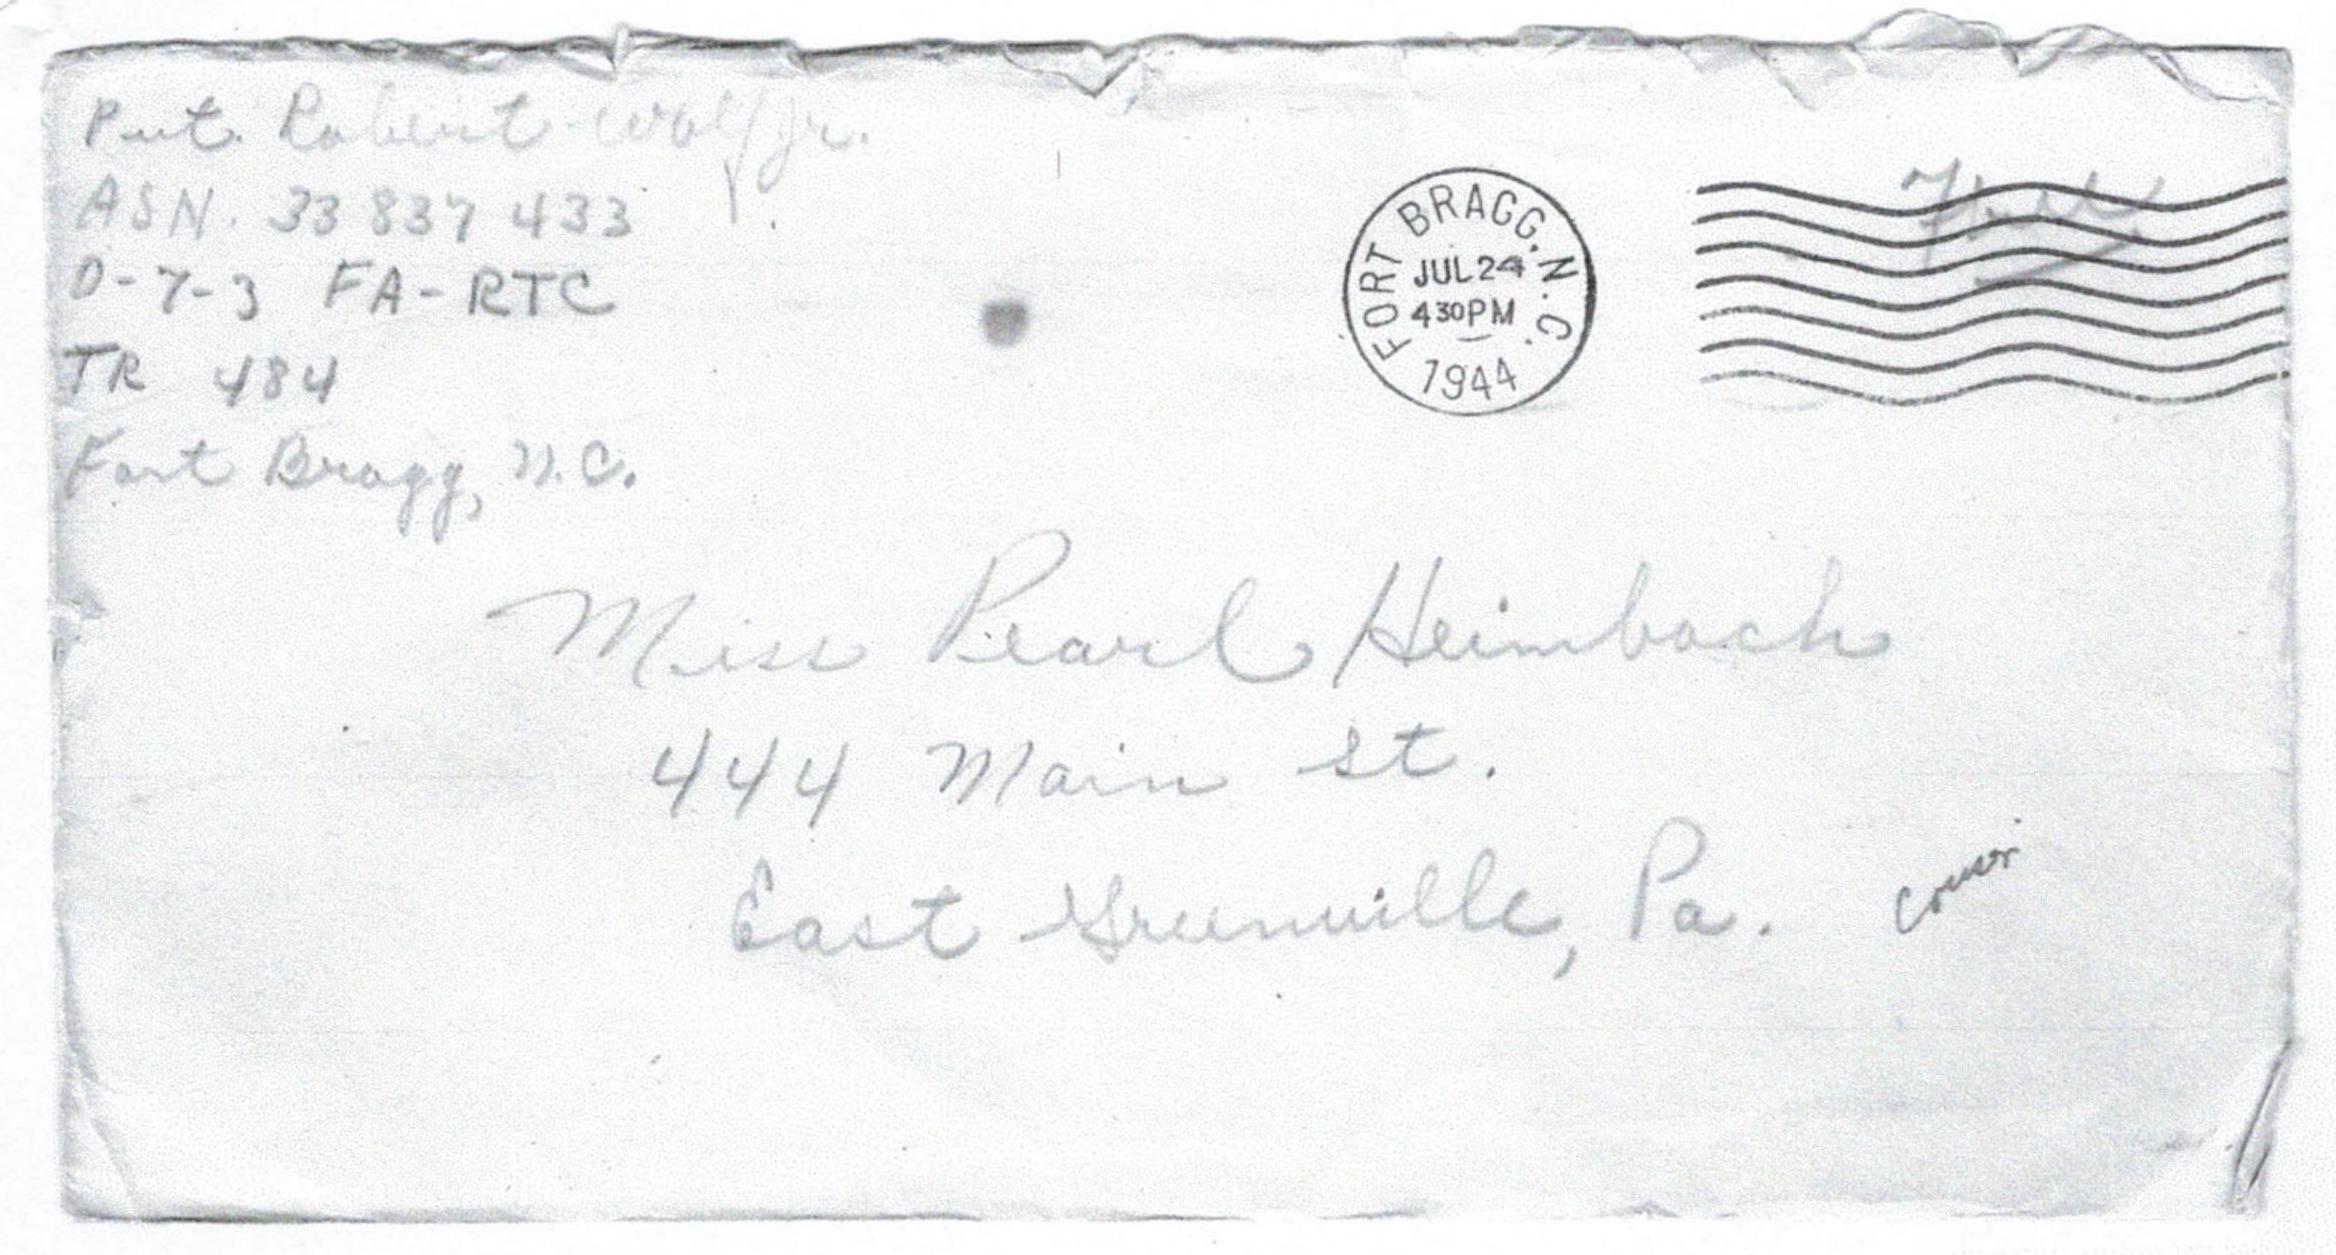 Pvt. Robert Wolf Jr.
ASN. 33 837 433
D-7-3 FA-RTC
TR 484
Fort Bragg, N.C.
FORT BRAGG, N.C.
JUL 24
430PM
1944
Free
Miss Pearl Heimbach
444 Main St.
East Greenville, Pa.